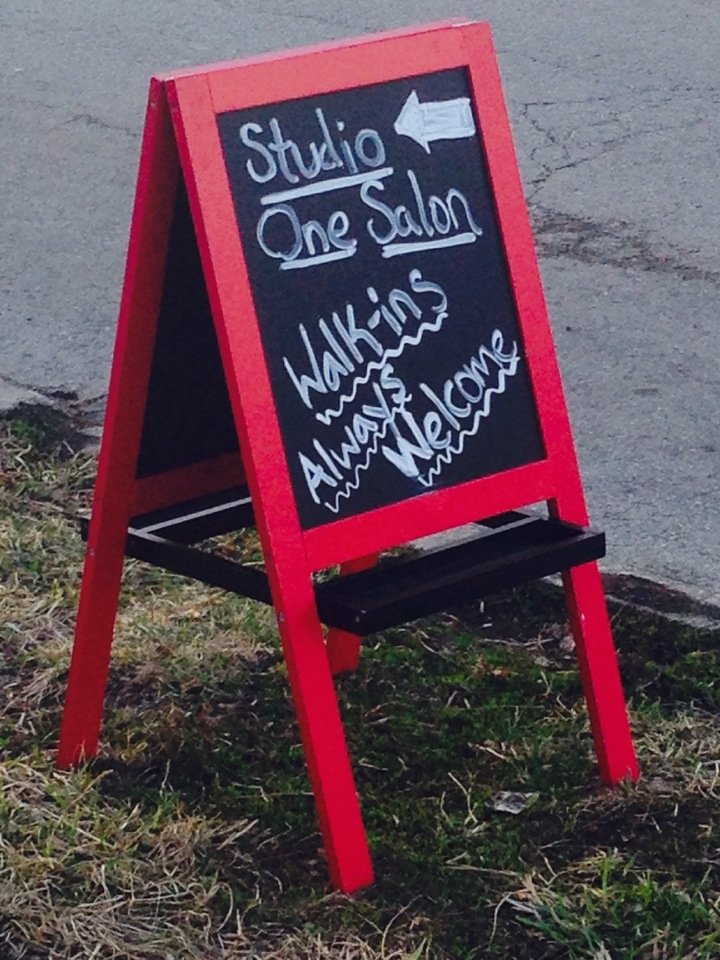 Studio
One Salon
Walk-ins
Always
Welcome